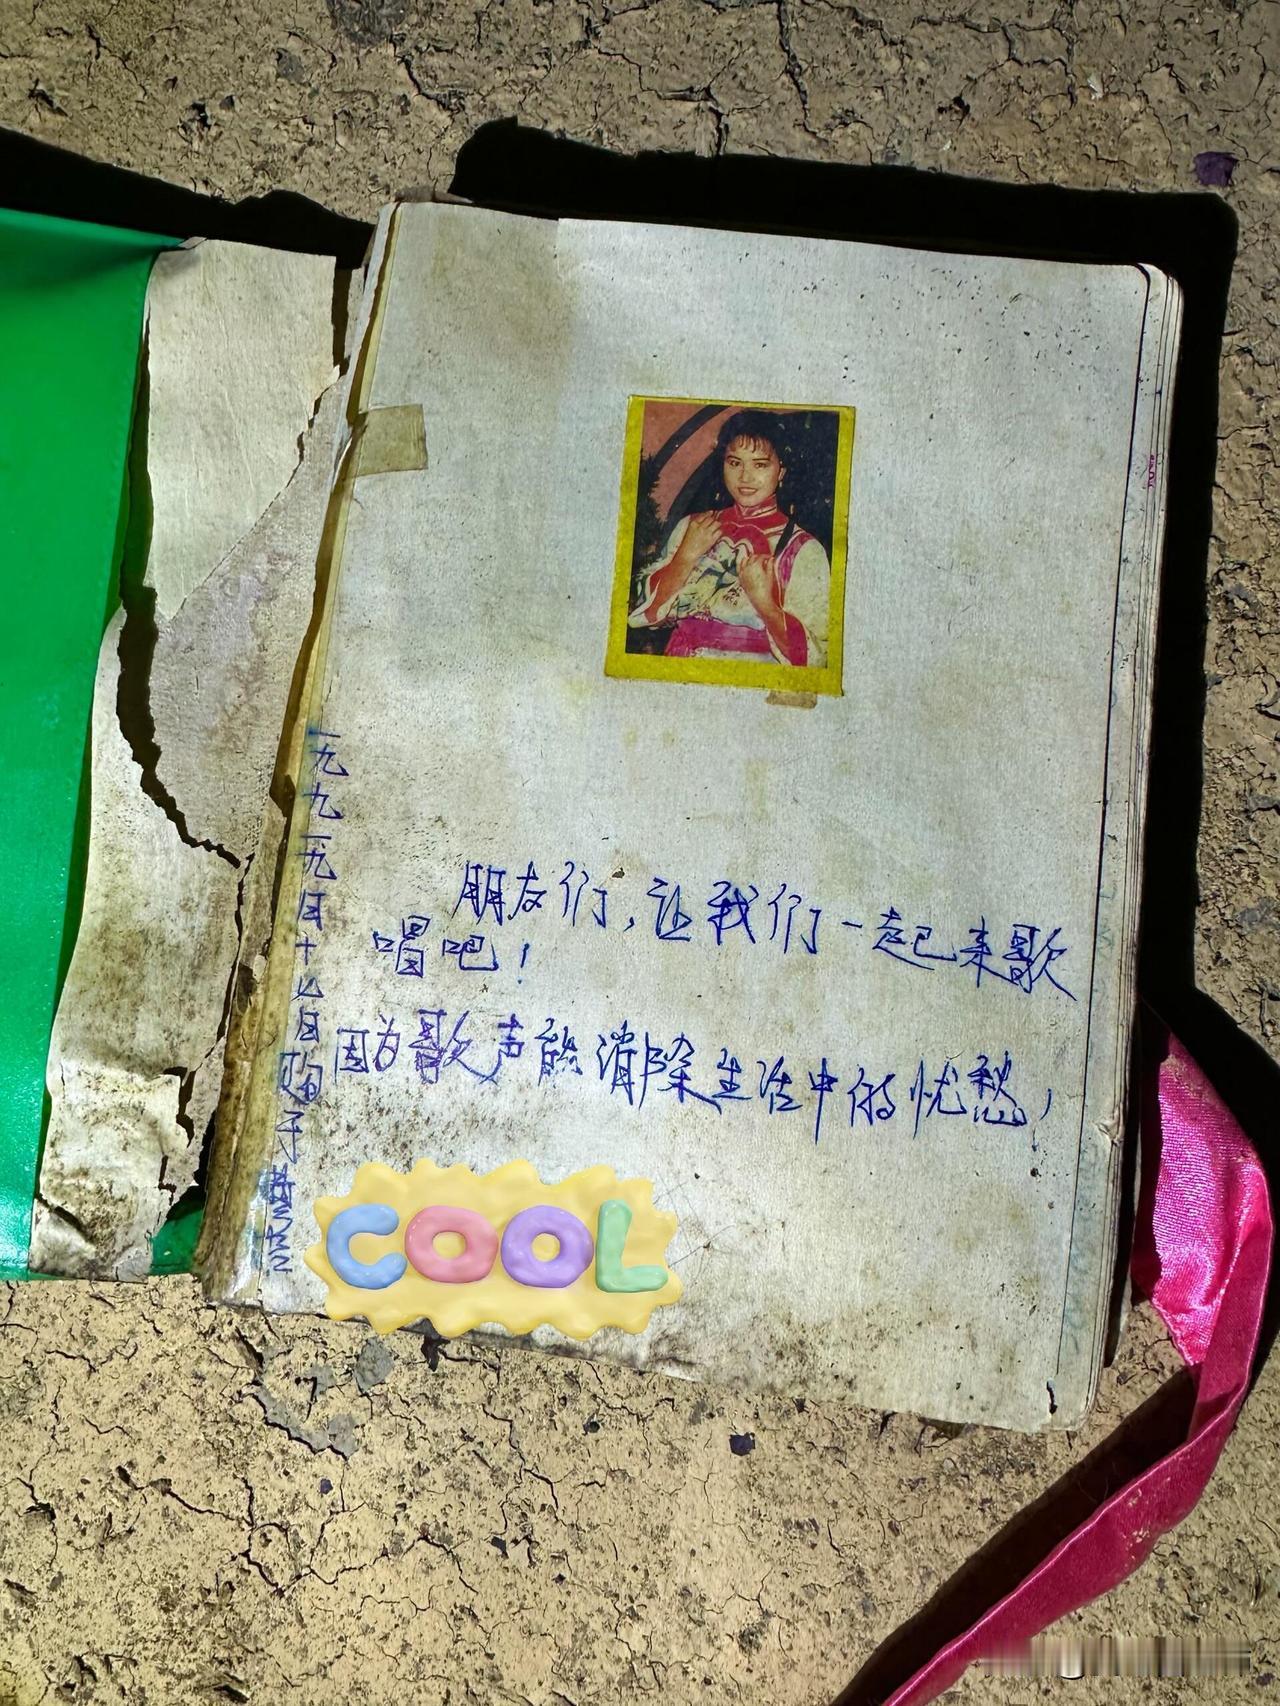 朋友们，让我们一起来歌
唱吧！
因为歌声能消除生活中的忧愁，
一九九一九月十七日购于
COOL